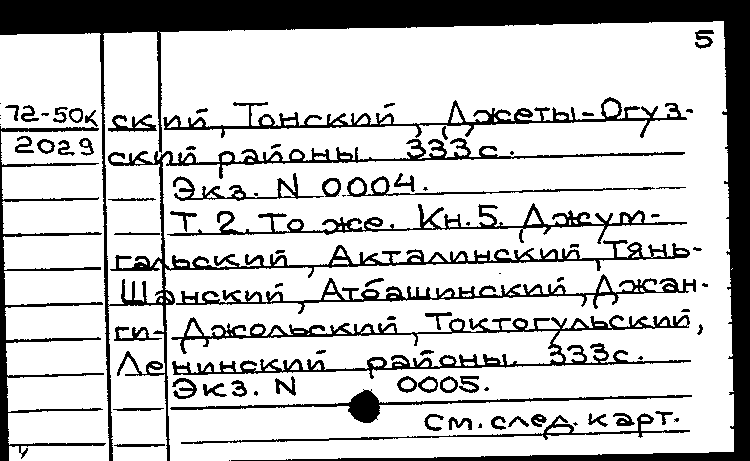 5
72-50к
2029
ский, Тонский, Джеты-Огуз-
ский районы. 333с.
Экз. N 0004.
Т. 2. То же. Кн. 5. Джум-
гальский, Акталинский, Тянь-
Шанский, Атбашинский, Джан-
ги-Джольский, Токтогульский,
Ленинский районы. 333с.
Экз. N 0005.
см. след. карт.